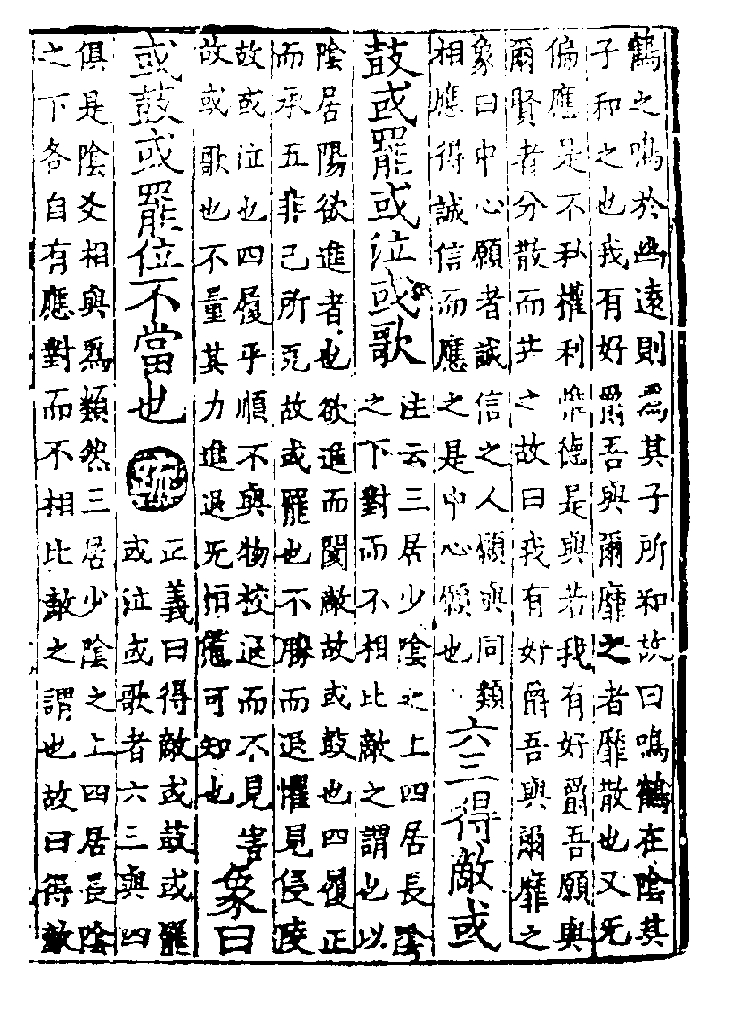 鶴之鳴於幽遠則爲其子所和故曰鳴鶴在隂其
子和之也我有好爵吾與爾靡之者靡散也又无
偏應是不私權利惟德是與若我有好爵吾願與
爾賢者分散而共之故曰我有好爵吾與爾靡之
象曰中心願者誠信之人願與同類
相應得誠信而應之是中心願也
六三得敵或
鼓或罷或泣或歌
注云三居少隂之上四居長隂
之下對而不相比敵之謂也以
隂居陽欲進者也欲進而閡敵故或鼓也四履正
而承五非己所克故或罷也不勝而退懼見侵陵
故或泣也四履乎順不與物校退而不見害
故或歌也不量其力進退无恒憊可知也
象曰
或鼓或罷位不當也
疏
正義曰得敵或鼓或罷
或泣或歌者六三與四
俱是隂爻相與爲類然三居少隂之上四居長隂
之下各自有應對而不相比敵之謂也故曰得敵